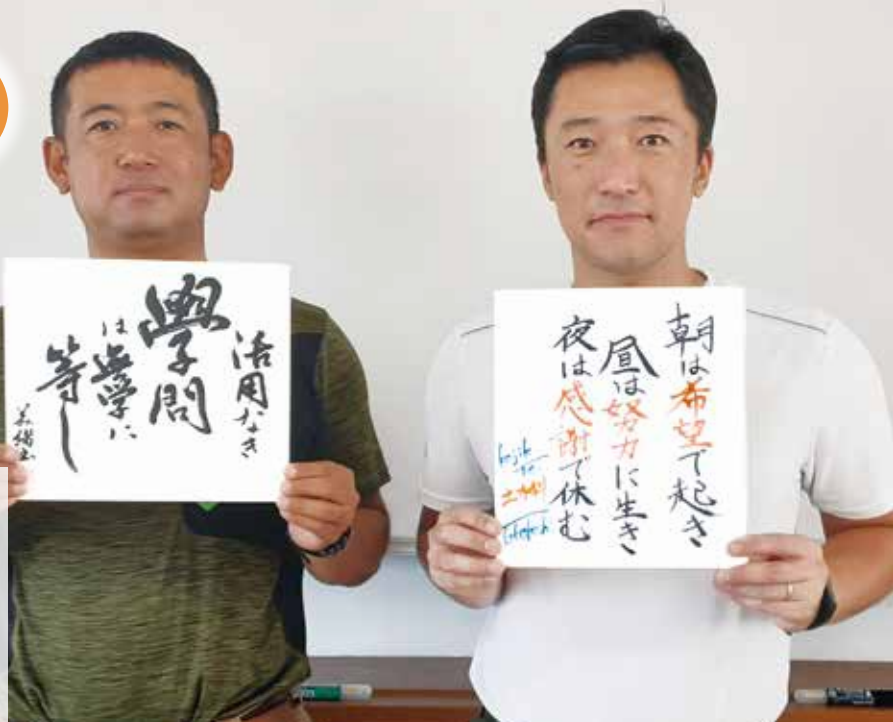 活用なき
學問
は無学に
等し
朝は希望で起き
昼は努力に生き
夜は感謝で休む